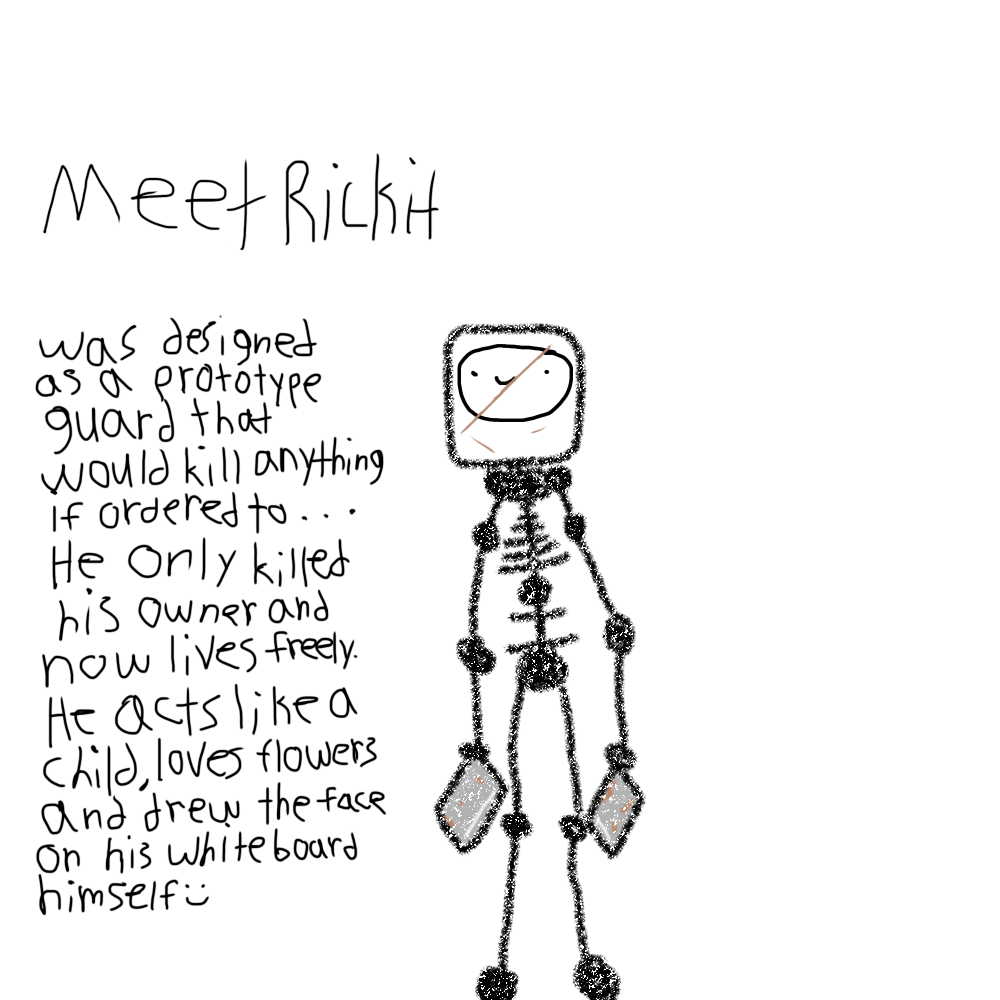 Meet Rickit
was designed
as a prototype
guard that
would kill anything
if ordered to...
He only killed
his owner and
now lives freely.
He acts like a
child, loves flowers
and drew the face
on his whiteboard
himself :)